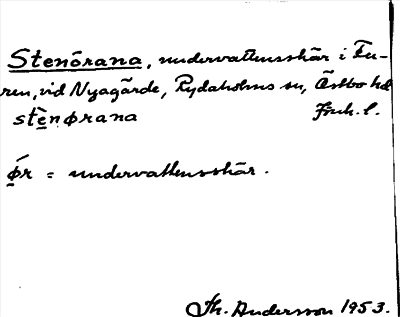 Stenörana, undervattensskär i Fu-
ren, vid Nyagärde, Rydaholms sn, Östbo hd
stènørana Jönk. l.
ǿr = undervattensskär.
Th. Andersson 1953.